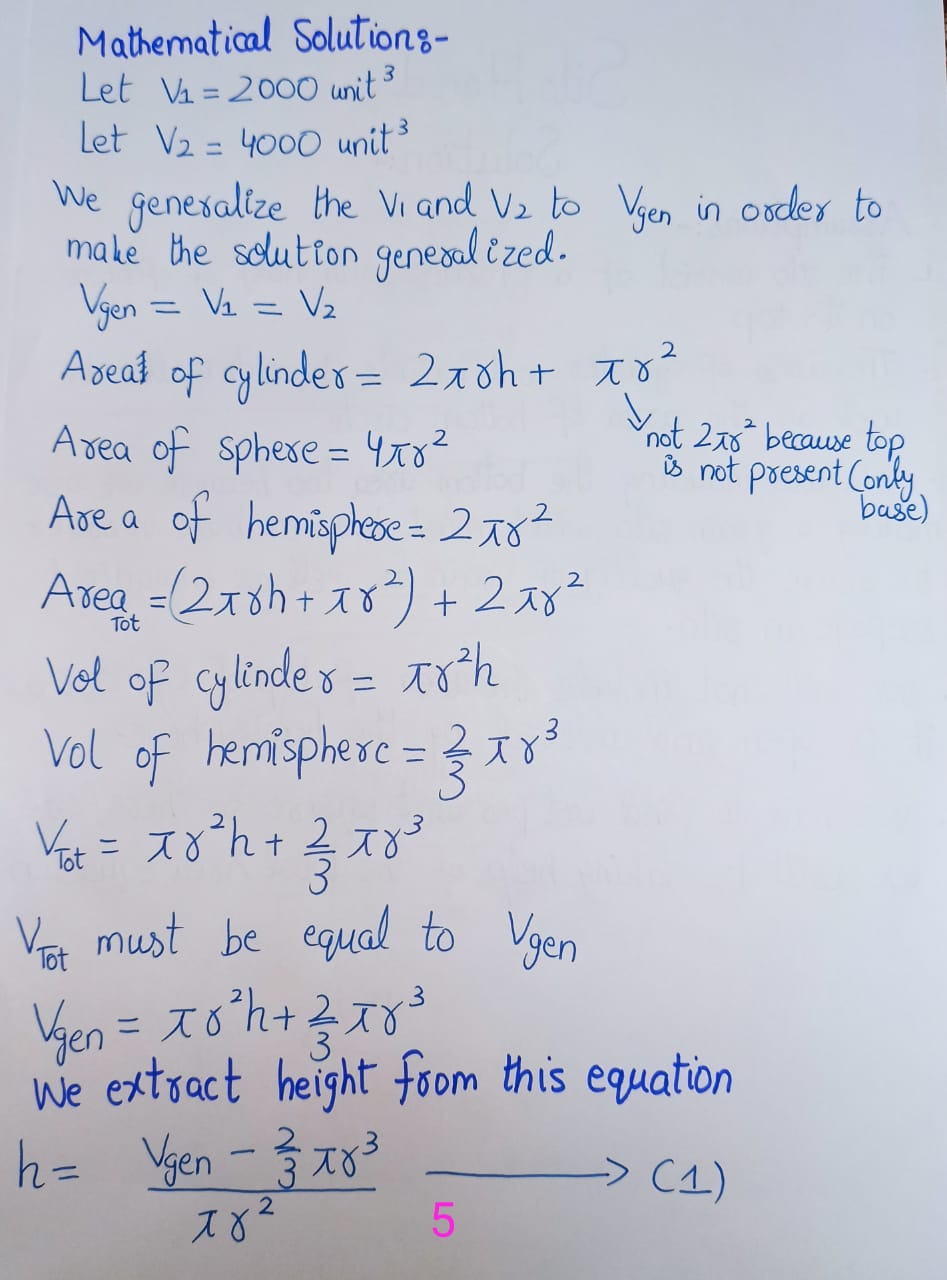 Mathematical Solution:-
Let V1 = 2000 unit³
Let V2 = 4000 unit³
We generalize the V1 and V2 to Vgen in order to
make the solution generalized.
Vgen = V1 = V2
Area of cylinder = 2πrh + πr²
↘ not 2πr² because top
is not present (only
base)
Area of sphere = 4πr²
Area of hemisphere = 2πr²
Area Tot = (2πrh + πr²) + 2πr²
Vol of cylinder = πr²h
Vol of hemisphere = 2/3 πr³
VTot = πr²h + 2/3 πr³
VTot must be equal to Vgen
Vgen = πr²h + 2/3 πr³
We extract height from this equation
h = (Vgen - 2/3 πr³) / πr² ⟶ (1)
5